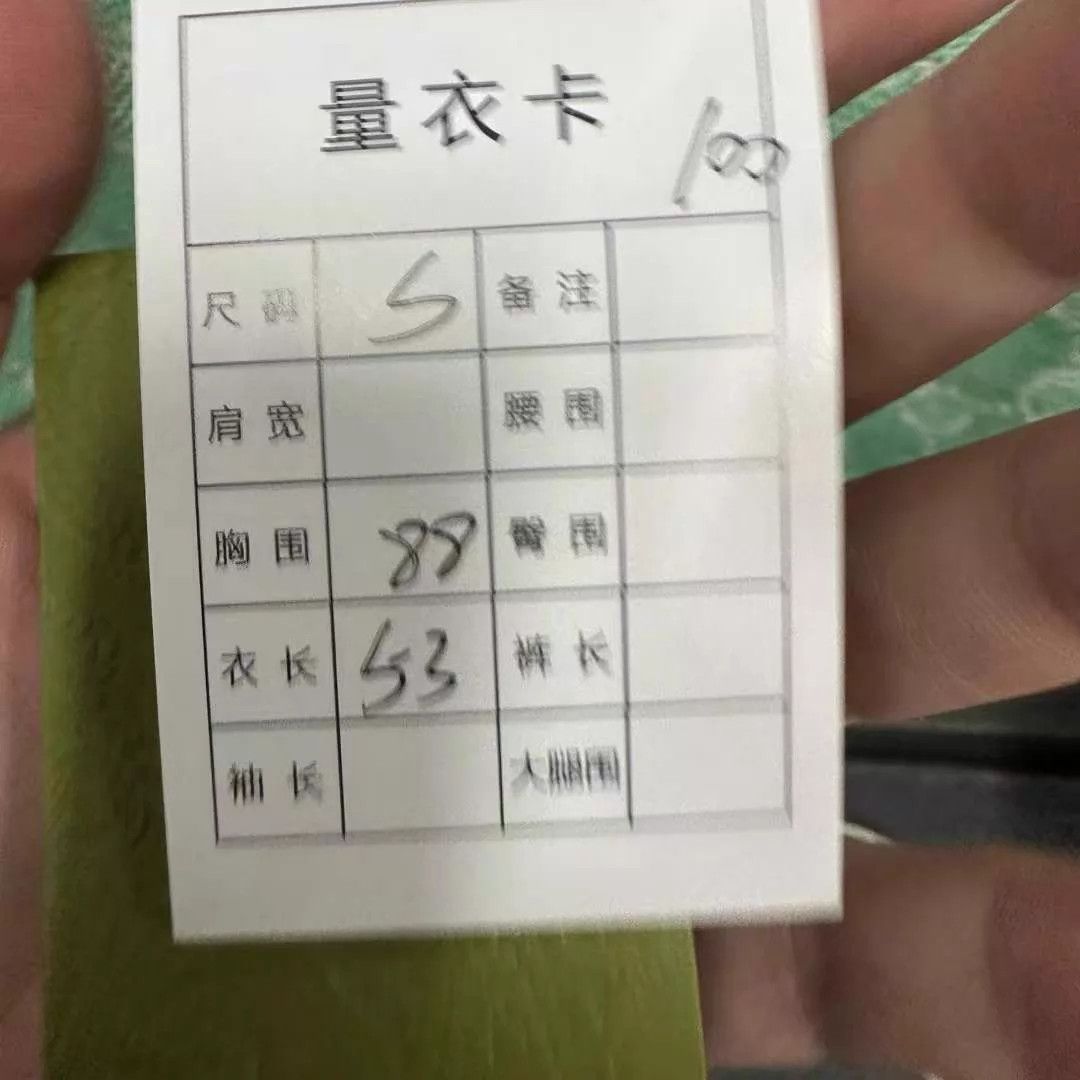 量衣卡
100
尺码 S 备注
肩宽 腰围
胸围 88 臀围
衣长 53 裤长
袖长 大腿围